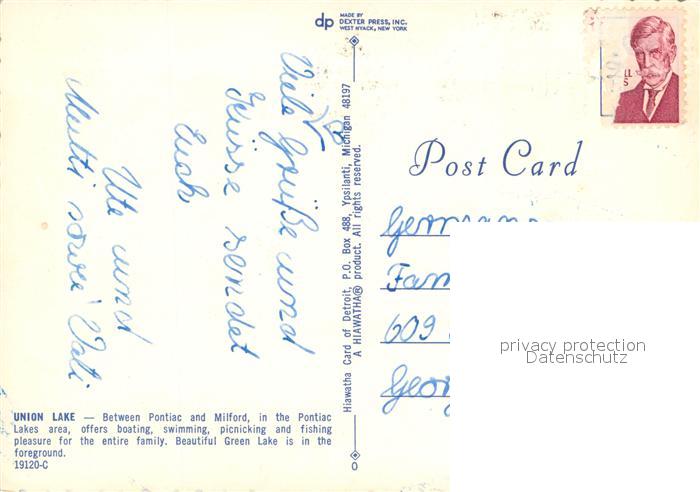 dp MADE BY
DEXTER PRESS, INC.
WEST NYACK, NEW YORK
Viele Grüße und
Küsse sendet
Euch
Ute und
Mutti sowie Vati
Hiawatha Card of Detroit, P.O. Box 488, Ypsilanti, Michigan 48197
A HIAWATHA® product. All rights reserved.
Post Card
Fam
609
privacy protection
Datenschutz
UNION LAKE — Between Pontiac and Milford, in the Pontiac
Lakes area, offers boating, swimming, picnicking and fishing
pleasure for the entire family. Beautiful Green Lake is in the
foreground.
19120-C